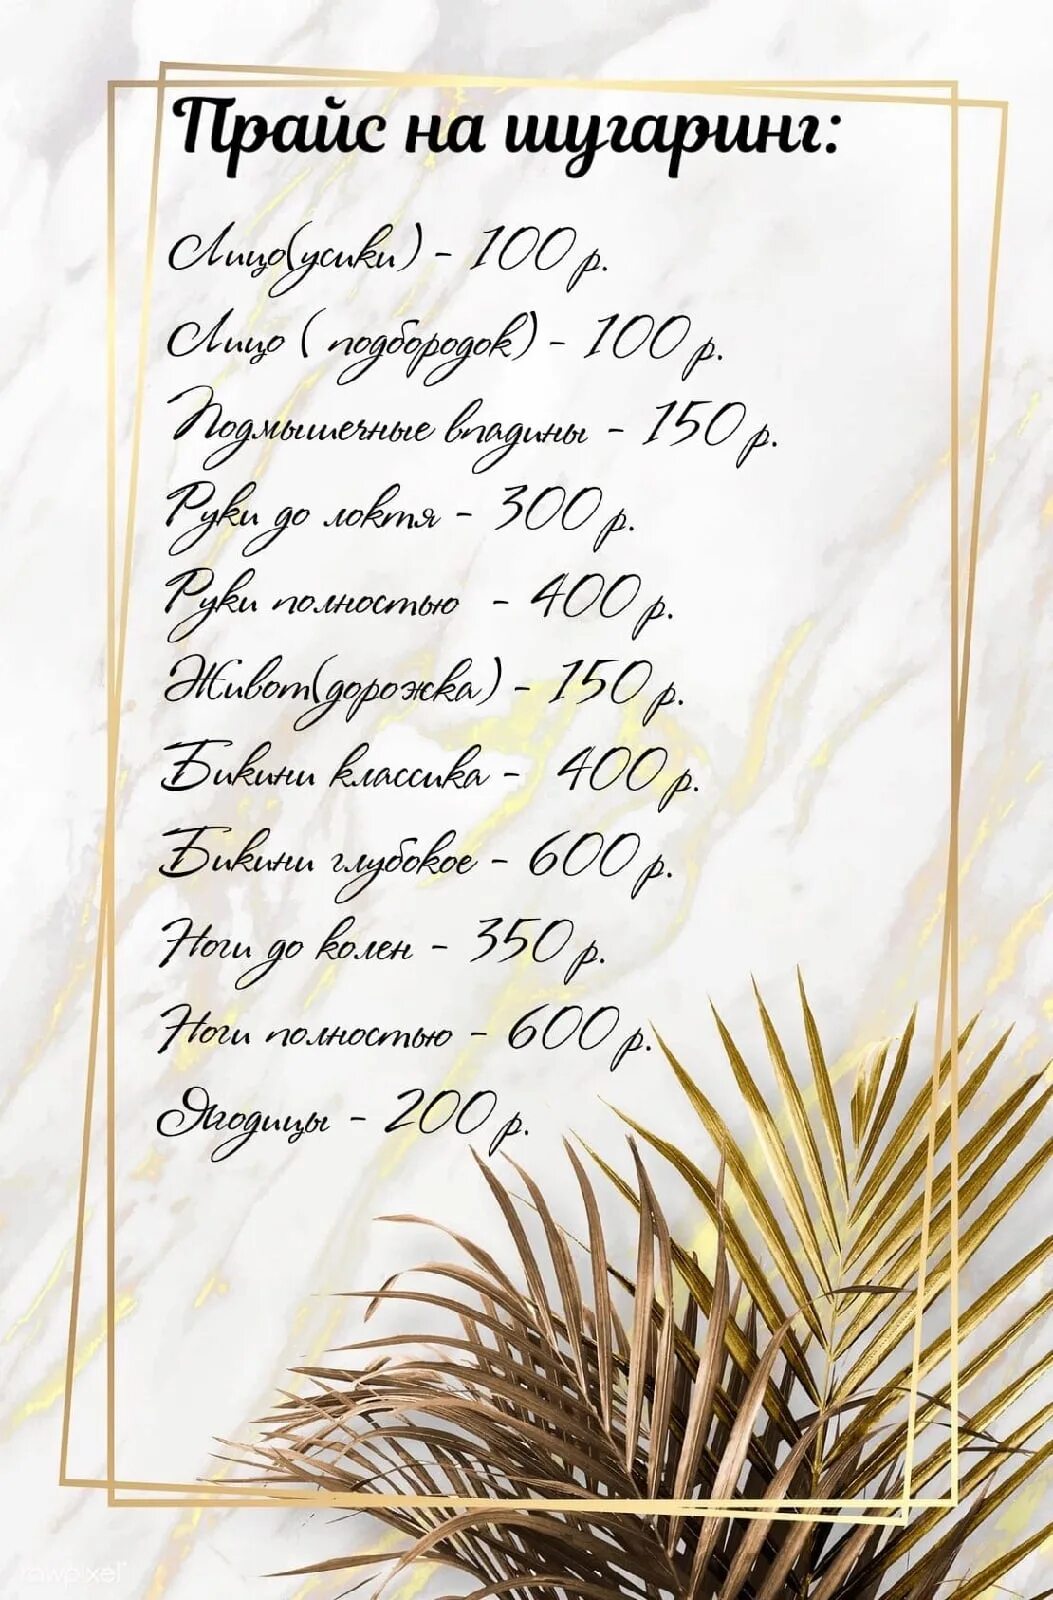 Прайс на шугаринг:
Лицо(усики) - 100 р.
Лицо ( подбородок) - 100 р.
Подмышечные впадины - 150 р.
Руки до локтя - 300 р.
Руки полностью - 400 р.
Живот(дорожка) - 150 р.
Бикини классика - 400 р.
Бикини глубокое - 600 р.
Ноги до колен - 350 р.
Ноги полностью - 600 р.
Ягодицы - 200 р.
rawpixel